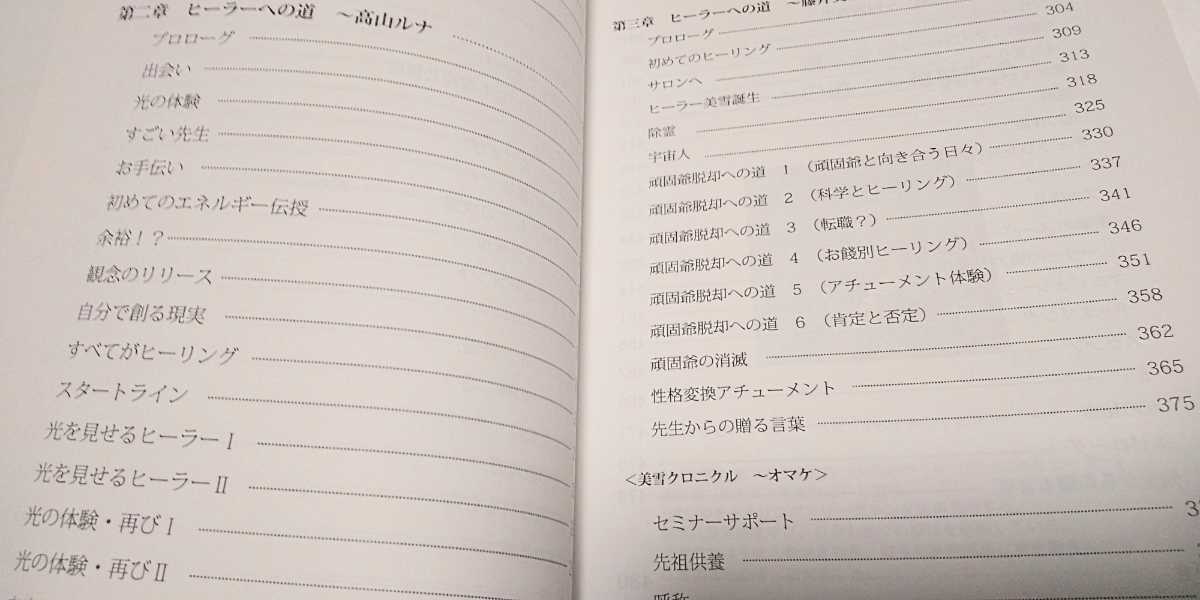 第二章　ヒーラーへの道　～高山ルナ
プロローグ
出会い
光の体験
すごい先生
お手伝い
初めてのエネルギー伝授
余裕！？
観念のリリース
自分で創る現実
すべてがヒーリング
スタートライン
光を見せるヒーラーⅠ
光を見せるヒーラーⅡ
光の体験・再びⅠ
光の体験・再びⅡ
第三章　ヒーラーへの道　～藤井
プロローグ 304
初めてのヒーリング 309
サロンへ 313
ヒーラー美雪誕生 318
除霊 325
宇宙人 330
頑固爺脱却への道　1　（頑固爺と向き合う日々） 337
頑固爺脱却への道　2　（科学とヒーリング） 341
頑固爺脱却への道　3　（転職？） 346
頑固爺脱却への道　4　（お餞別ヒーリング） 351
頑固爺脱却への道　5　（アチューメント体験） 358
頑固爺脱却への道　6　（肯定と否定） 362
頑固爺の消滅 365
性格変換アチューメント 375
先生からの贈る言葉
＜美雪クロニクル　～オマケ＞
セミナーサポート
先祖供養
呼称